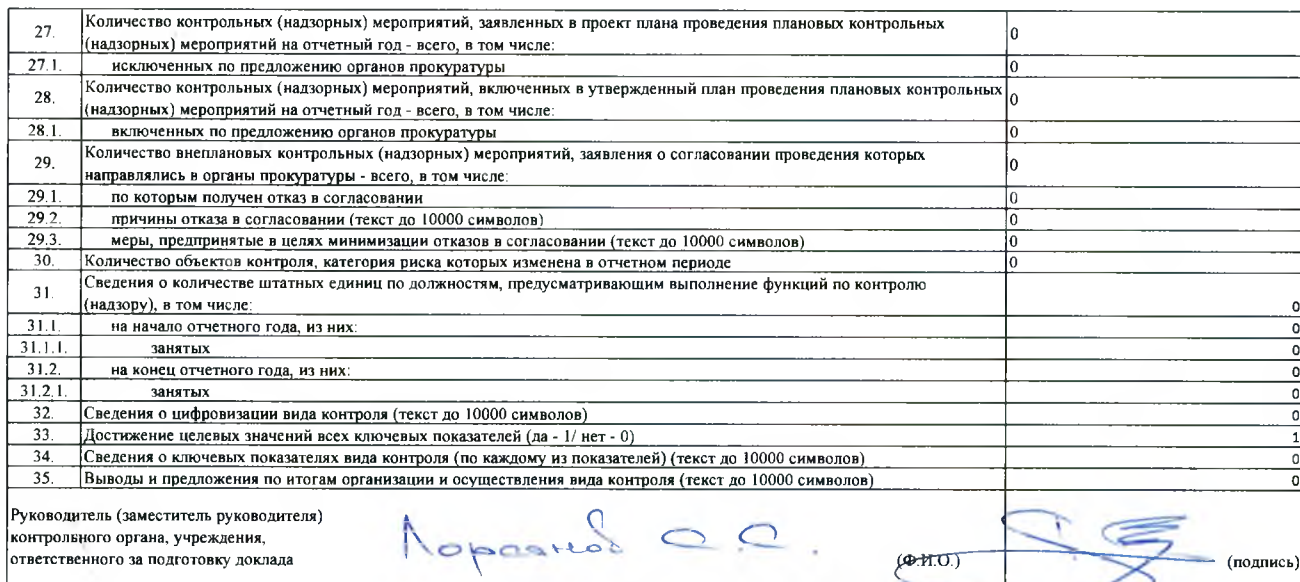 27. Количество контрольных (надзорных) мероприятий, заявленных в проект плана проведения плановых контрольных
(надзорных) мероприятий на отчетный год - всего, в том числе: 0
27.1. исключенных по предложению органов прокуратуры 0
28. Количество контрольных (надзорных) мероприятий, включенных в утвержденный план проведения плановых контрольных
(надзорных) мероприятий на отчетный год - всего, в том числе: 0
28.1. включенных по предложению органов прокуратуры 0
29. Количество внеплановых контрольных (надзорных) мероприятий, заявления о согласовании проведения которых
направлялись в органы прокуратуры - всего, в том числе: 0
29.1. по которым получен отказ в согласовании 0
29.2. причины отказа в согласовании (текст до 10000 символов) 0
29.3. меры, предпринятые в целях минимизации отказов в согласовании (текст до 10000 символов) 0
30. Количество объектов контроля, категория риска которых изменена в отчетном периоде 0
31. Сведения о количестве штатных единиц по должностям, предусматривающим выполнение функций по контролю
(надзору), в том числе: 0
31.1. на начало отчетного года, из них: 0
31.1.1. занятых 0
31.2. на конец отчетного года, из них: 0
31.2.1. занятых 0
32. Сведения о цифровизации вида контроля (текст до 10000 символов) 0
33. Достижение целевых значений всех ключевых показателей (да - 1/ нет - 0) 1
34. Сведения о ключевых показателях вида контроля (по каждому из показателей) (текст до 10000 символов) 0
35. Выводы и предложения по итогам организации и осуществления вида контроля (текст до 10000 символов) 0
Руководитель (заместитель руководителя)
контрольного органа, учреждения,
ответственного за подготовку доклада С.С. (Ф.И.О.) (подпись)